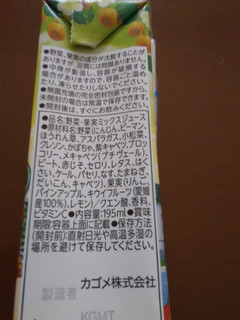 ●野菜、果実の成分が沈殿することが
ありますが、品質には問題ありません。
●中身が膨張し、容器が破損する
場合がありますので、容器ごと温め
たり、凍らせたりしないでください。
●無菌充填の完全密封包装ですから、
未開封の場合は常温で保存できます。
●開封後は
●品名:野菜・果実ミックスジュース
●原材料名:野菜(にんじん、ピーマン、
ほうれん草、アスパラガス、小松菜、
クレソン、かぼちゃ、紫キャベツ、ブロッ
コリー、メキャベツ(プチヴェール)、
ビート、赤じそ、セロリ、レタス、はく
さい、ケール、パセリ、なす、たまねぎ、
だいこん、キャベツ)、果実(りんご、
パインアップル、キウイフルーツ(愛媛
産100%)、レモン)、クエン酸、香料、
ビタミンC ●内容量:195ml ●賞味
期限:容器上部に記載 ●保存方法
(開封前):直射日光や高温多湿の
場所を避けて保存してください。
製造者 カゴメ株式会社
KGMT